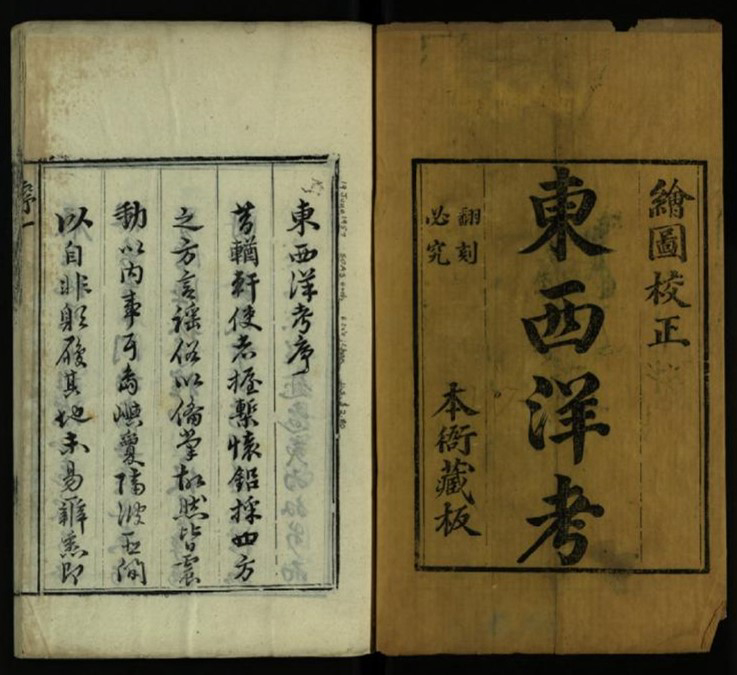 繪圖校正
東西洋考
翻刻
必究
本衙藏板
東西洋考序
昔輶軒使者握槧懷鉛採四方
之方言謠俗以備掌故然皆
以內事耳島嶼夐隔波
以自非躬履其地未易悉即
序一